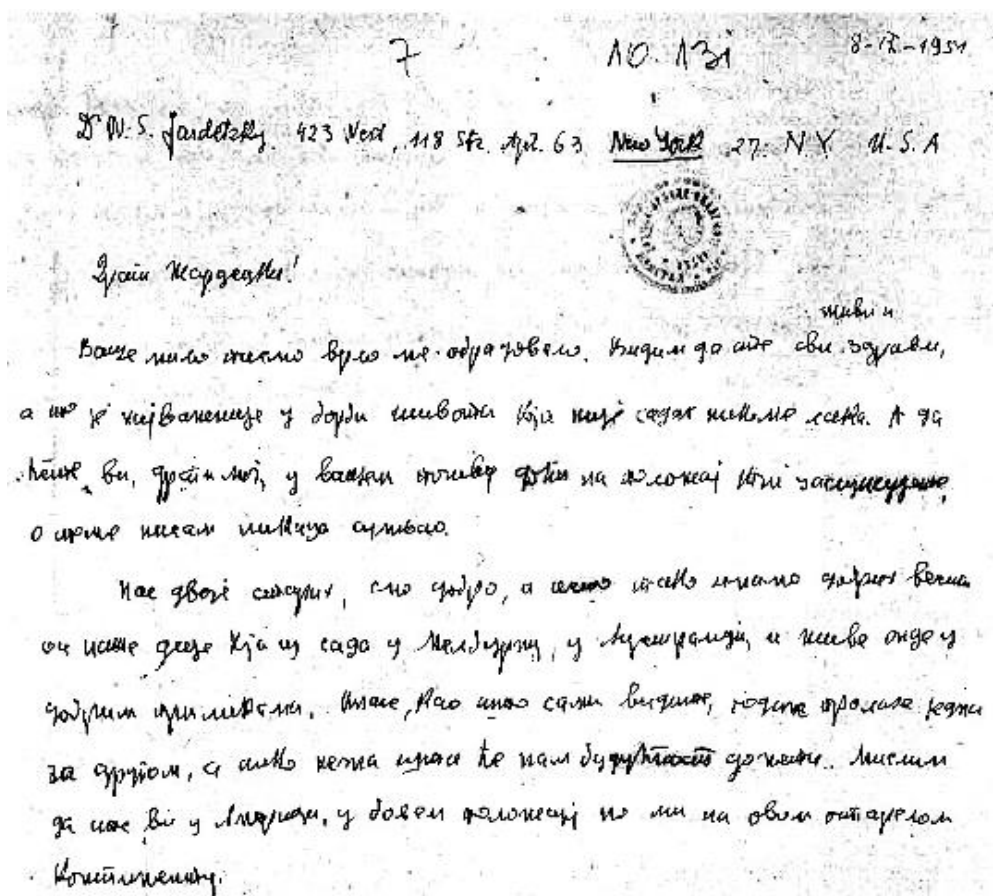 7 10.131 8-IX-1951
Dr W. S. Jardetzky. 423 West, 118 Str. Apt. 63 New York 27. N.Y. U.S.A
Драги Жардецки!
живи и
Ваше мило писмо врло ме обрадовало. Видим да сте сви здрави,
а то је најважније у борби живота која није садак никоме лака. А да
ћете, ви, драги мој, у вашем доћи на положај који заслужујете,
о томе нисам никада сумњао.
Нас двоје старих, смо добро, а исто тако имамо добрих вести
од наше деце која су сада у Мелбурну, у Аустралији, и живе онде у
добрим приликама. Иначе, као што сами видите, године пролазе једна
за другом, а нико не зна шта ће нам будућност донети. Мислим
да сте ви у Америци, у бољем положају но ми на овом остарелом
Континенту.